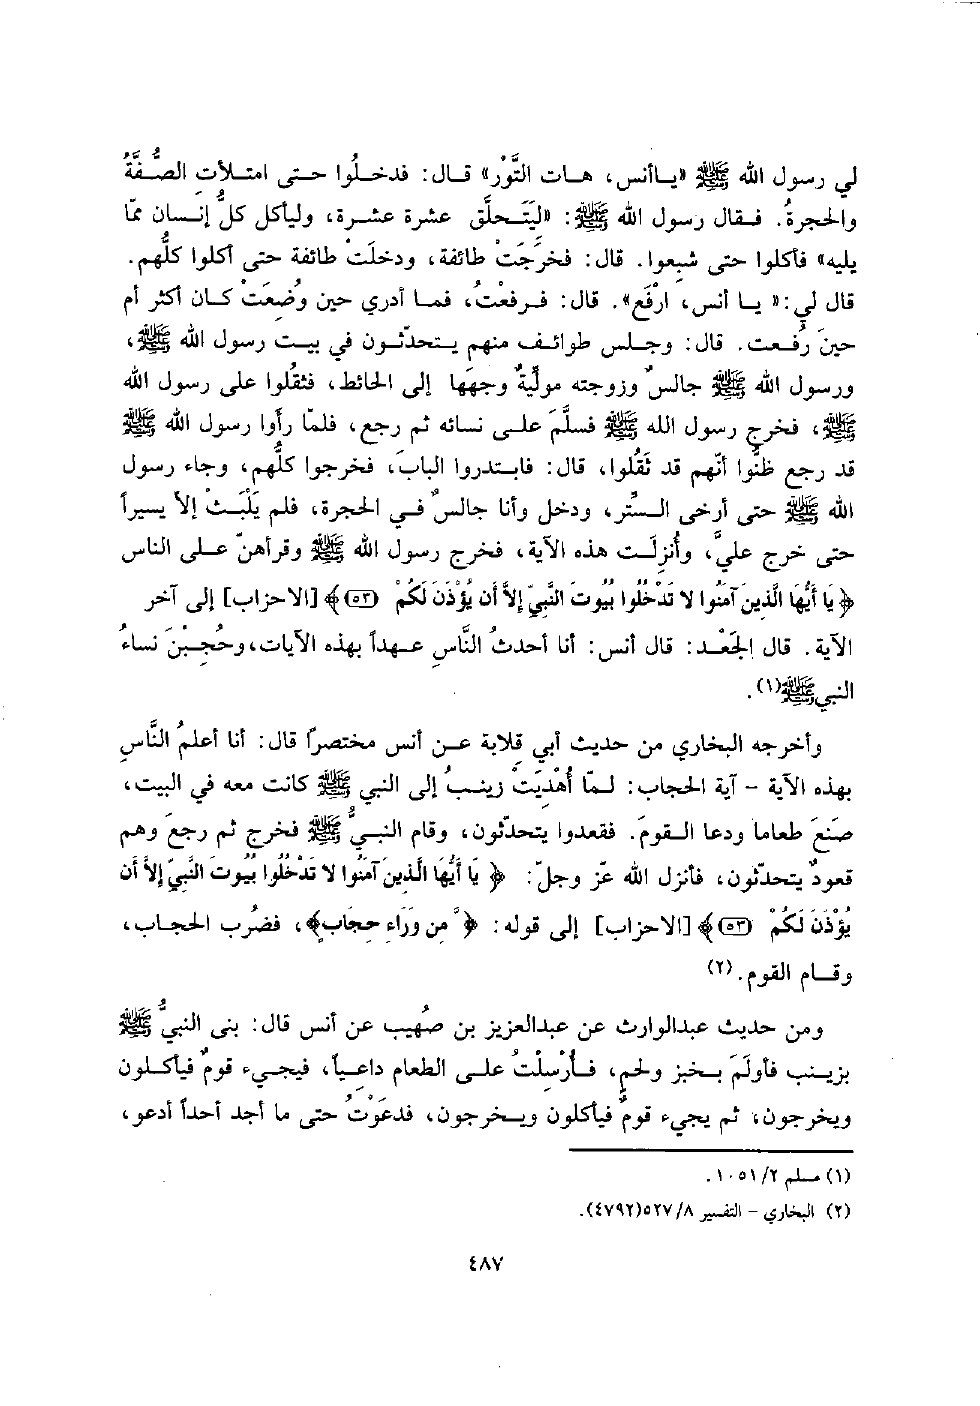 لي رسول الله ﷺ «ياأنس، هات التَّوْر» قال: فدخلُوا حتى امتلأت الصُّفَّةُ
والحجرةُ. فقال رسول الله ﷺ: «ليَتَحلَّق عشرة عشرة، وليأكل كلُّ إنسان ممّا
يليه» فأكلوا حتى شبِعوا. قال: فخرجَتْ طائفة، ودخلَتْ طائفة حتى أكلوا كلُّهم.
قال لي:« يا أنس، ارْفَع». قال: فرفعْتُ، فما أدري حين وُضِعَتْ كان أكثر أم
حينَ رُفعت. قال: وجلس طوائف منهم يتحدّثون في بيت رسول الله ﷺ،
ورسول الله ﷺ جالسٌ وزوجته مولّيةٌ وجهَها إلى الحائط، فثقُلوا على رسول الله
ﷺ، فخرج رسول الله ﷺ فسلَّمَ على نسائه ثم رجع، فلمّا رأَوا رسول الله ﷺ
قد رجع ظنُّوا أنّهم قد ثَقُلوا، قال: فابتدروا البابَ، فخرجوا كلُّهم، وجاء رسول
الله ﷺ حتى أرخى السِّتر، ودخل وأنا جالسٌ في الحجرة، فلم يَلْبَثْ إلاّ يسيراً
حتى خرج عليَّ، وأُنزِلَت هذه الآية، فخرج رسول الله ﷺ وقرأهنّ على الناس
﴿يَا أَيُّهَا الَّذِينَ آمَنُوا لا تَدْخُلُوا بُيُوتَ النَّبِيِّ إِلاَّ أَن يُؤْذَنَ لَكُمْ (٥٣)﴾ [الاحزاب] إلى آخر
الآية. قال الجَعْد: قال أنس: أنا أحدثُ النَّاسِ عهداً بهذه الآيات، وحُجِبْنَ نساءُ
النبي ﷺ(١).
وأخرجه البخاري من حديث أبي قلابة عن أنس مختصراً قال: أنا أعلمُ النَّاسِ
بهذه الآية - آية الحجاب: لمّا أُهْدِيَتْ زينبُ إلى النبي ﷺ كانت معه في البيت،
صنَعَ طعاما ودعا القومَ. فقعدوا يتحدّثون، وقام النبيُّ ﷺ فخرج ثم رجعَ وهم
قعودٌ يتحدّثون، فأنزل الله عزّ وجلّ: ﴿يَا أَيُّهَا الَّذِينَ آمَنُوا لا تَدْخُلُوا بُيُوتَ النَّبِيِّ إِلاَّ أَن
يُؤْذَنَ لَكُمْ (٥٣)﴾ [الاحزاب] إلى قوله: ﴿مِن وَرَاءِ حِجَابٍ﴾، فضُرِب الحجاب،
وقام القوم.(٢)
ومن حديث عبدالوارث عن عبدالعزيز بن صُهيب عن أنس قال: بنى النبيُّ ﷺ
بزينب فأولَمَ بخبز ولحمٍ، فأُرْسِلْتُ على الطعام داعياً، فيجيء قومٌ فيأكلون
ويخرجون، ثم يجيء قومٌ فيأكلون ويخرجون، فدعَوْتُ حتى ما أجد أحداً أدعو،
(١) مسلم ١٠٥١/٢.
(٢) البخاري - التفسير ٥٢٧/٨(٤٧٩٢).
٤٨٧